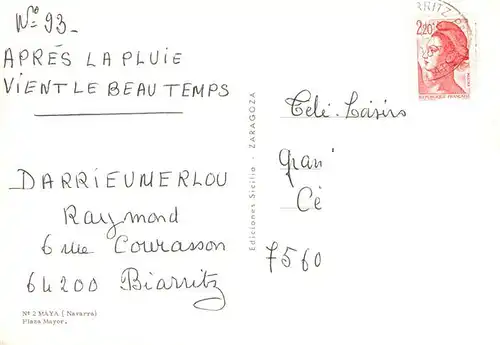 N° 93-
APRÉS LA PLUIE
VIENT LE BEAU TEMPS
DARRIEUMERLOU
Raymond
6 rue Courasson
64200 Biarritz
Nº 2 MAYA ( Navarra)
Plaza Mayor.
Ediciones Sicilia - ZARAGOZA
RRITZ
2,20
REPUBLIQUE FRANÇAISE
Télé-Loisirs
Gran
Cè
7560